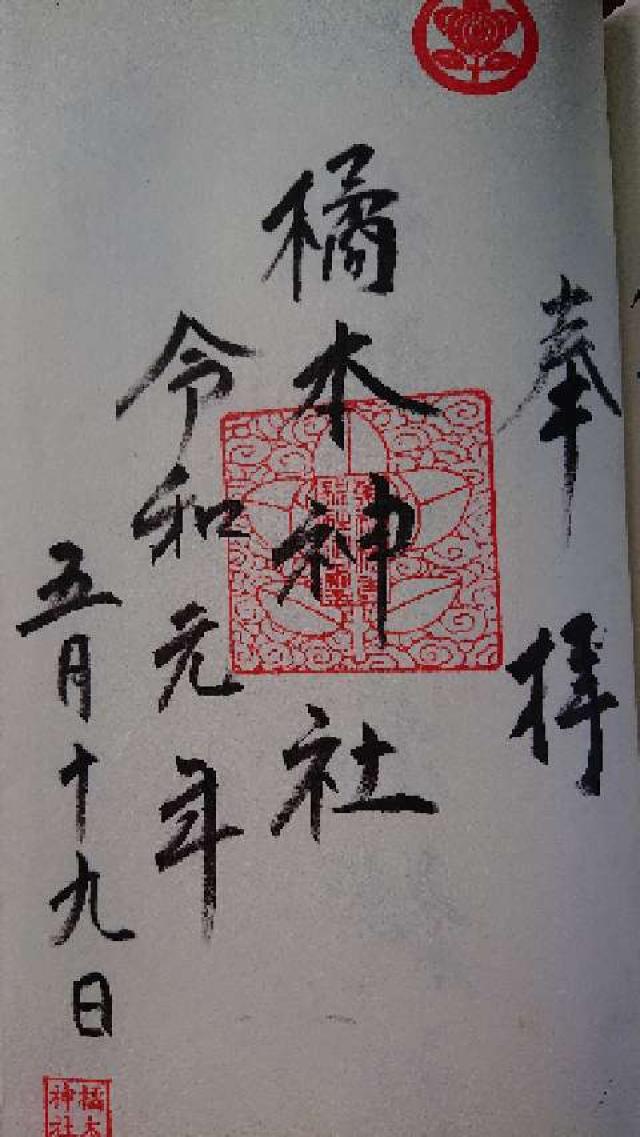 奉拝
橘本神社
令和元年
五月十九日
橘本
神社